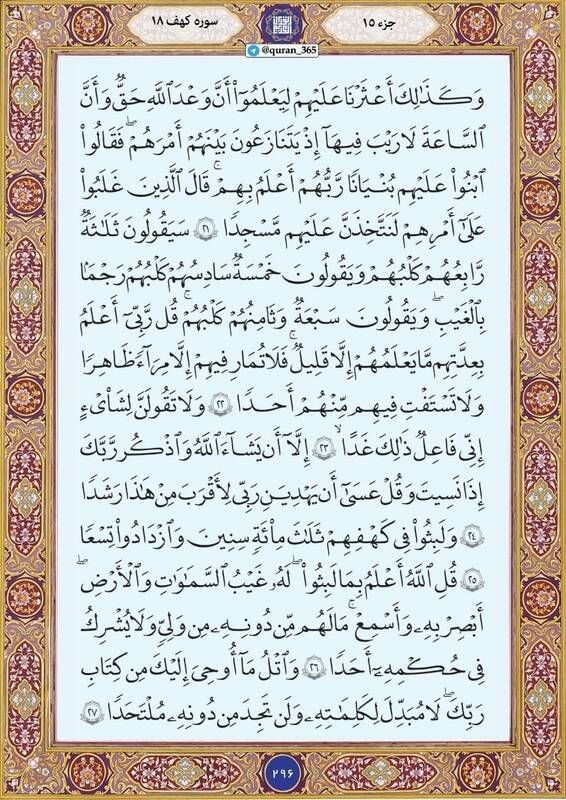 جزء ۱۵
سوره کهف ۱۸
@quran_365
وَكَذَٰلِكَ أَعْثَرْنَا عَلَيْهِمْ لِيَعْلَمُوٓا۟ أَنَّ وَعْدَ ٱللَّهِ حَقٌّ وَأَنَّ
ٱلسَّاعَةَ لَا رَيْبَ فِيهَآ إِذْ يَتَنَٰزَعُونَ بَيْنَهُمْ أَمْرَهُمْ ۖ فَقَالُوا۟
ٱبْنُوا۟ عَلَيْهِم بُنْيَٰنًا ۖ رَّبُّهُمْ أَعْلَمُ بِهِمْ ۚ قَالَ ٱلَّذِينَ غَلَبُوا۟
عَلَىٰٓ أَمْرِهِمْ لَنَتَّخِذَنَّ عَلَيْهِم مَّسْجِدًا ۝۲۱ سَيَقُولُونَ ثَلَٰثَةٌ
رَّابِعُهُمْ كَلْبُهُمْ وَيَقُولُونَ خَمْسَةٌ سَادِسُهُمْ كَلْبُهُمْ رَجْمًۢا
بِٱلْغَيْبِ ۖ وَيَقُولُونَ سَبْعَةٌ وَثَامِنُهُمْ كَلْبُهُمْ ۚ قُل رَّبِّىٓ أَعْلَمُ
بِعِدَّتِهِم مَّا يَعْلَمُهُمْ إِلَّا قَلِيلٌ ۗ فَلَا تُمَارِ فِيهِمْ إِلَّا مِرَآءً ظَٰهِرًا
وَلَا تَسْتَفْتِ فِيهِم مِّنْهُمْ أَحَدًا ۝۲۲ وَلَا تَقُولَنَّ لِشَا۟ىْءٍ
إِنِّى فَاعِلٌ ذَٰلِكَ غَدًا ۝۲۳ إِلَّآ أَن يَشَآءَ ٱللَّهُ ۚ وَٱذْكُر رَّبَّكَ
إِذَا نَسِيتَ وَقُلْ عَسَىٰٓ أَن يَهْدِيَنِ رَبِّى لِأَقْرَبَ مِنْ هَٰذَا رَشَدًا
۝۲۴ وَلَبِثُوا۟ فِى كَهْفِهِمْ ثَلَٰثَ مِا۟ئَةٍ سِنِينَ وَٱزْدَادُوا۟ تِسْعًا
۝۲۵ قُلِ ٱللَّهُ أَعْلَمُ بِمَا لَبِثُوا۟ ۖ لَهُۥ غَيْبُ ٱلسَّمَٰوَٰتِ وَٱلْأَرْضِ ۖ
أَبْصِرْ بِهِۦ وَأَسْمِعْ ۚ مَا لَهُم مِّن دُونِهِۦ مِن وَلِىٍّ وَلَا يُشْرِكُ
فِى حُكْمِهِۦٓ أَحَدًا ۝۲۶ وَٱتْلُ مَآ أُوحِىَ إِلَيْكَ مِن كِتَابِ
رَبِّكَ ۖ لَا مُبَدِّلَ لِكَلِمَٰتِهِۦ وَلَن تَجِدَ مِن دُونِهِۦ مُلْتَحَدًا ۝۲۷
۲۹۶